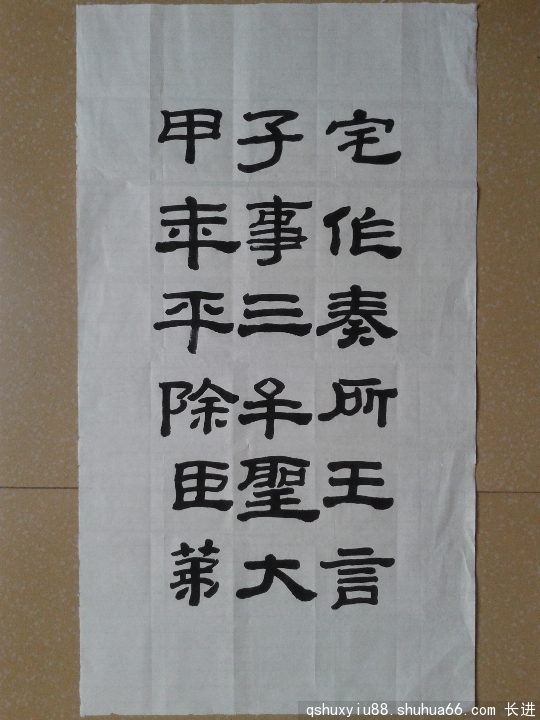 宅作奏所王言
子事三牟聖大
甲年平除臣第
qshuxyiu88.shuhua66.com 长进